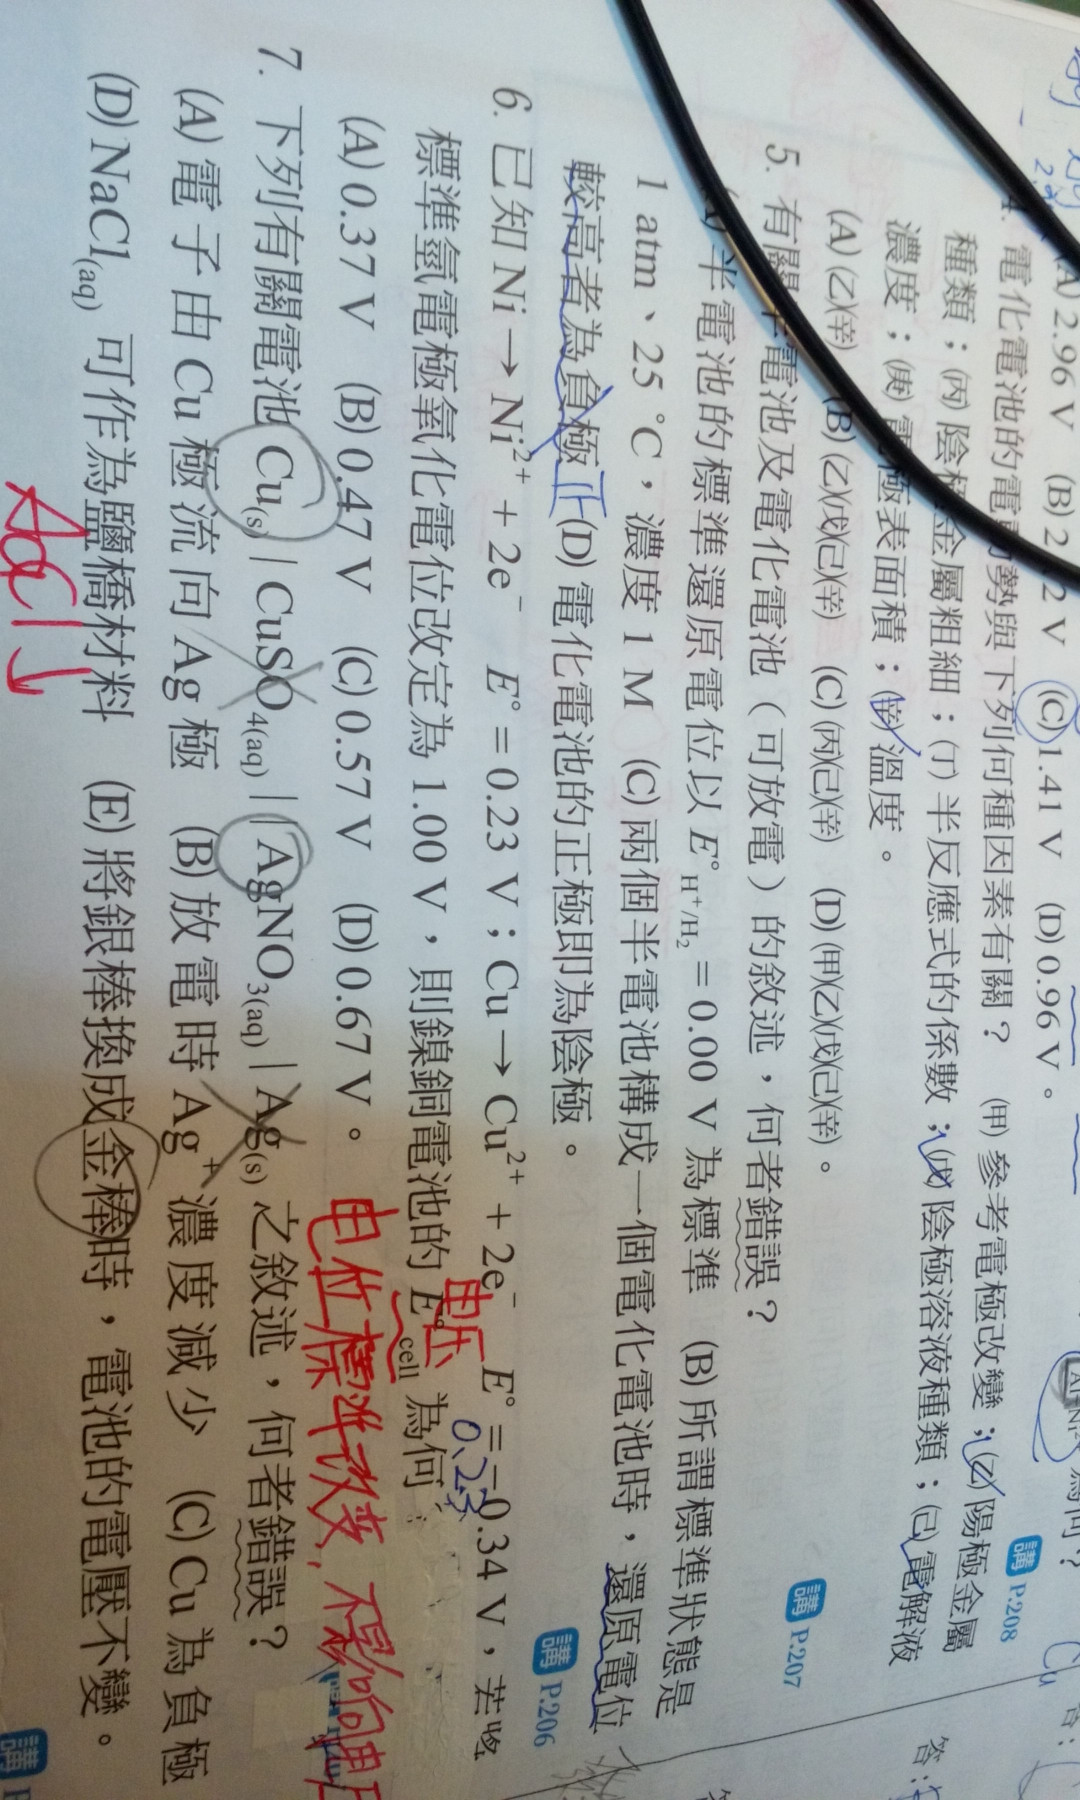 (A) 2.96 V (B) 2 2 V (C) 1.41 V (D) 0.96 V。
電化電池的電 勢與下列何種因素有關？ (甲) 參考電極改變；(乙) 陽極金屬
種類；(丙) 陰極金屬粗細；(丁) 半反應式的係數；(戊) 陰極溶液種類；(己) 電解液
濃度；(庚) 電極表面積；(辛) 溫度。
(A) (乙)(辛) (B) (乙)(戊)(己)(辛) (C) (丙)(己)(辛) (D) (甲)(乙)(戊)(己)(辛)。
講 P.208
5. 有關 半電池及電化電池（可放電）的敘述，何者錯誤？
半電池的標準還原電位以 E°H⁺/H₂ = 0.00 V 為標準 (B) 所謂標準狀態是
1 atm、25 °C，濃度 1 M (C) 兩個半電池構成一個電化電池時，還原電位
較高者為負極 正 (D) 電化電池的正極即為陰極。
講 P.207
6. 已知 Ni → Ni²⁺ + 2e⁻ E° = 0.23 V；Cu → Cu²⁺ + 2e⁻ E° = −0.34 V，若將
標準氫電極氧化電位改定為 1.00 V，則鎳銅電池的 E°cell 為何
(A) 0.37 V (B) 0.47 V (C) 0.57 V (D) 0.67 V。
講 P.206
0.23
电压
电位標準改变，不影响电压
7. 下列有關電池 Cu(s) | CuSO₄(aq) || AgNO₃(aq) | Ag(s) 之敘述，何者錯誤？
(A) 電子由 Cu 極流向 Ag 極 (B) 放電時 Ag⁺ 濃度減少 (C) Cu 為負極
(D) NaCl(aq) 可作為鹽橋材料 (E) 將銀棒換成金棒時，電池的電壓不變。
AgCl↓
講
Cu
答：
答：